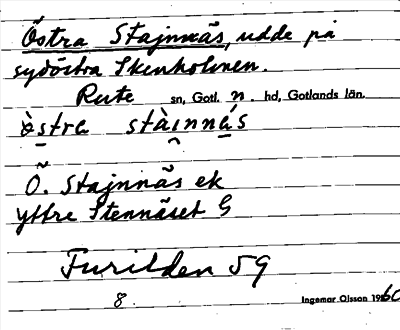 Östra Stajnnäs, udde på
sydöstra Skenholmen.
Rute sn, Gotl. n. hd, Gotlands län.
òstre stàinnás
Ö. Stajnnäs ek
yttre Stennäset G
Furilden 59
8 Ingemar Olsson 1960